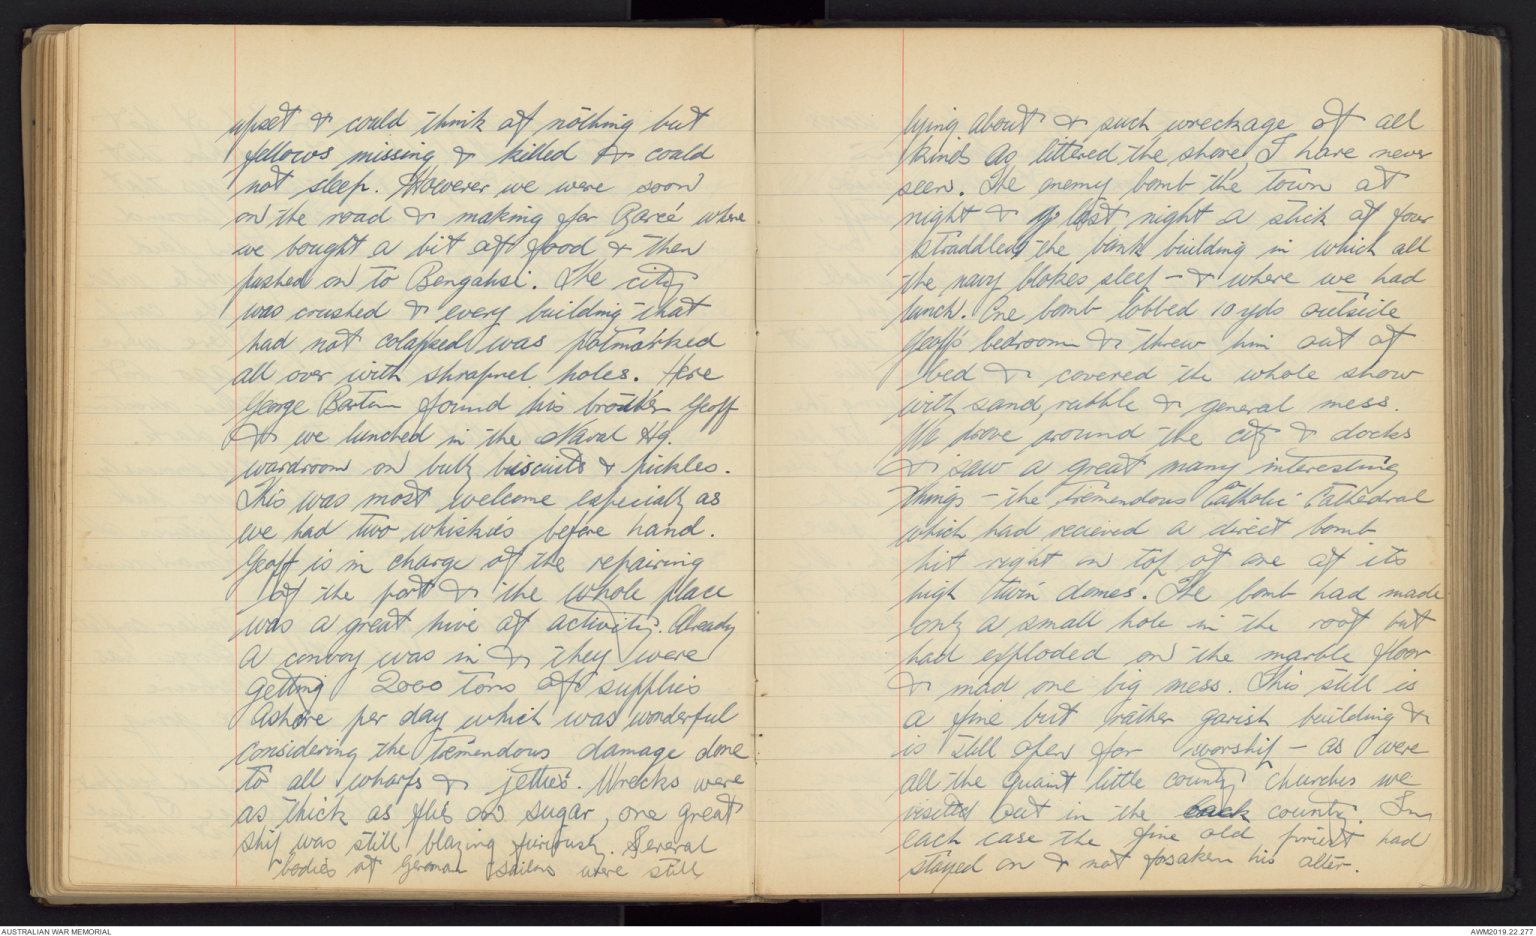 upset & could think of nothing but
fellows missing & killed & could
not sleep. However we were soon
on the road & making for Barcé where
we bought a bit of food & then
pushed on to Bengahsi. The city
was crushed & every building that
had not colapsed was potmarked
all over with shrapnel holes. Here
George Bartun found his brother Geoff
& we lunched in the Naval Hq.
wardroom on bully biscuits & pickles.
This was most welcome especially as
we had two whiskies before hand.
Geoff is in charge of the repairing
of the port & the whole place
was a great hive of activity. Already
a convoy was in & they were
getting 2000 tons of supplies
ashore per day which was wonderful
considering the tremendous damage done
to all wharfs & jetties. Wrecks were
as thick as flies on sugar, one great
ship was still blazing furiously. Several
bodies of German sailors were still
lying about & such wreckage of all
kinds as littered the shore, I have never
seen. The enemy bomb the town at
night & last night a stick of four
straddled the bank building in which all
the navy blokes sleep - & where we had
lunch. One bomb lobbed 10 yds outside
Geoff's bedroom & threw him out of
bed & covered the whole show
with sand, rubble & general mess.
We drove around the city & docks
& saw a great many interesting
things - the tremendous Catholic Cathedral
which had recieved a direct bomb
hit right on top of one of its
high twin domes. The bomb had made
only a small hole in the roof but
had exploded on the marble floor
& mad one big mess. This still is
a fine but rather garish building &
is still open for worship - as were
all the quaint little county churches we
visited out in the back county. In
each case the fine old priest had
stayed on & not forsaken his alter.
AUSTRALIAN WAR MEMORIAL
AWM2019.22.277